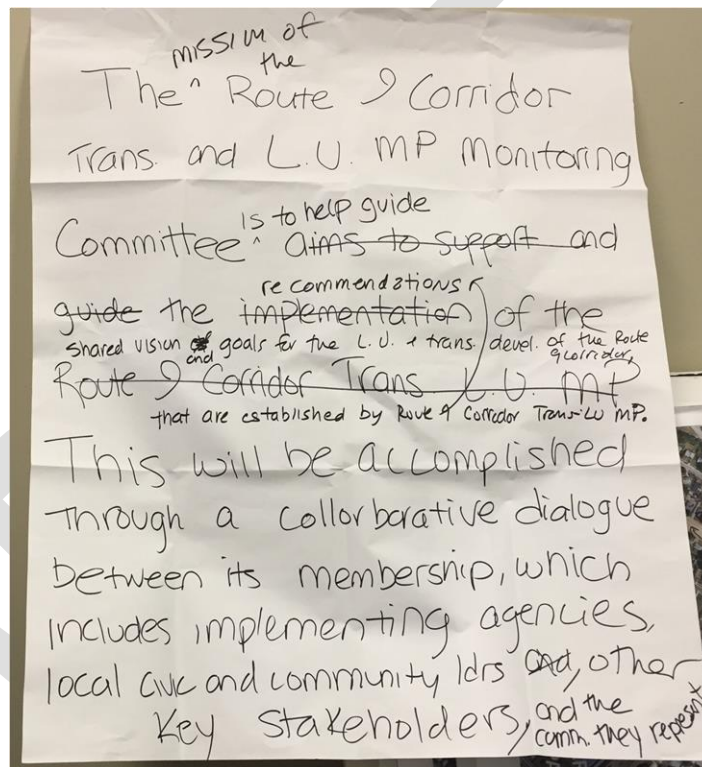 mission of
the
The ^ Route 9 Corridor
Trans. and L.U. MP Monitoring
is to help guide
Committee ^ aims to support and
recommendations
guide the implementation of the
shared vision of and goals for the L.U. & trans. devel. of the Route
9 corridor,
Route 9 Corridor Trans L.U. MP
that are established by Route 9 Corridor Trans & LU MP.
This will be accomplished
Through a collorborative dialogue
between its membership, which
includes implementing agencies,
local civic and community ldrs and, other
Key Stakeholders, and the
comm. they represent